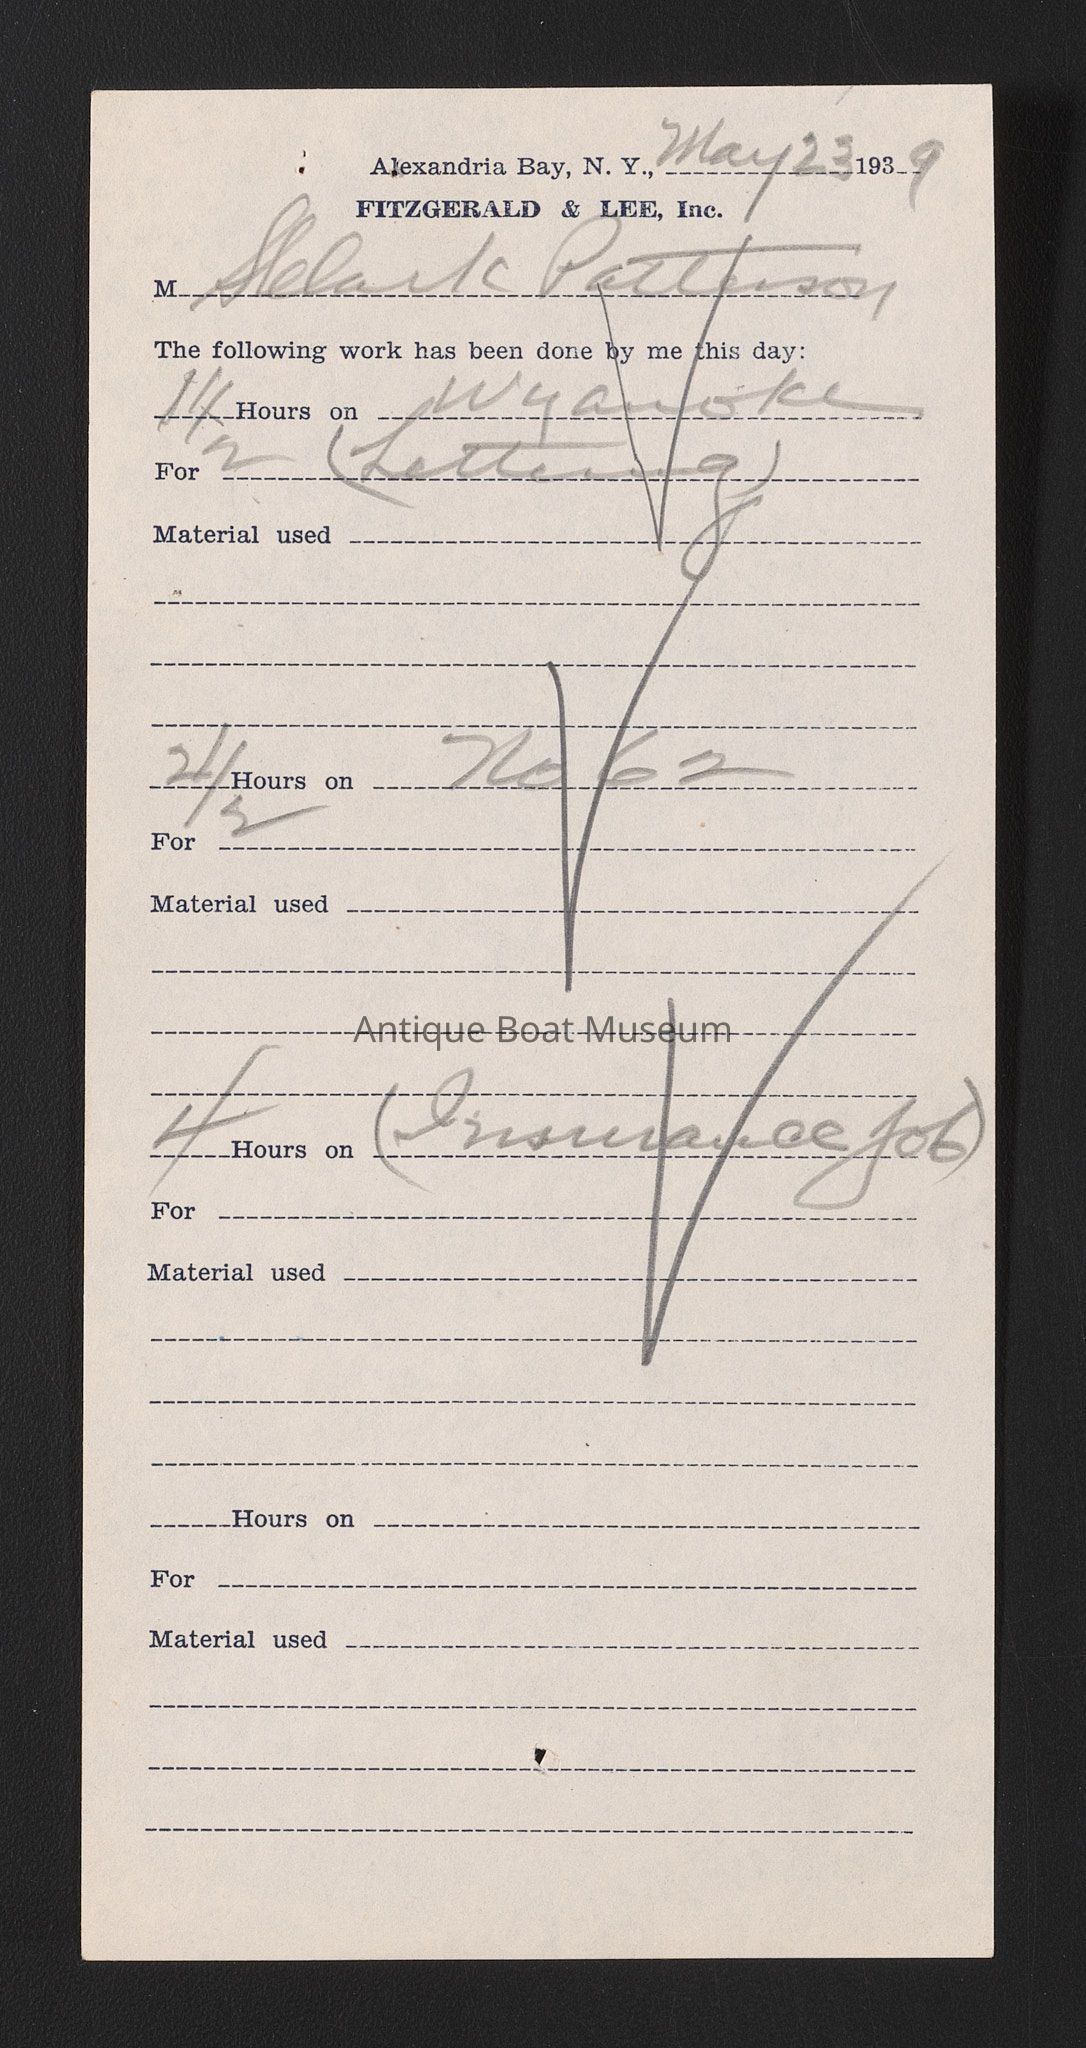 Alexandria Bay, N. Y., May 23 1939
FITZGERALD & LEE, Inc.
M Clark Patterson
The following work has been done by me this day:
1 1/2 Hours on Wyanoke
For (Lettering)
Material used
2 1/2 Hours on No 62
For
Material used
Antique Boat Museum
4 Hours on (Insurance job)
For
Material used
Hours on
For
Material used